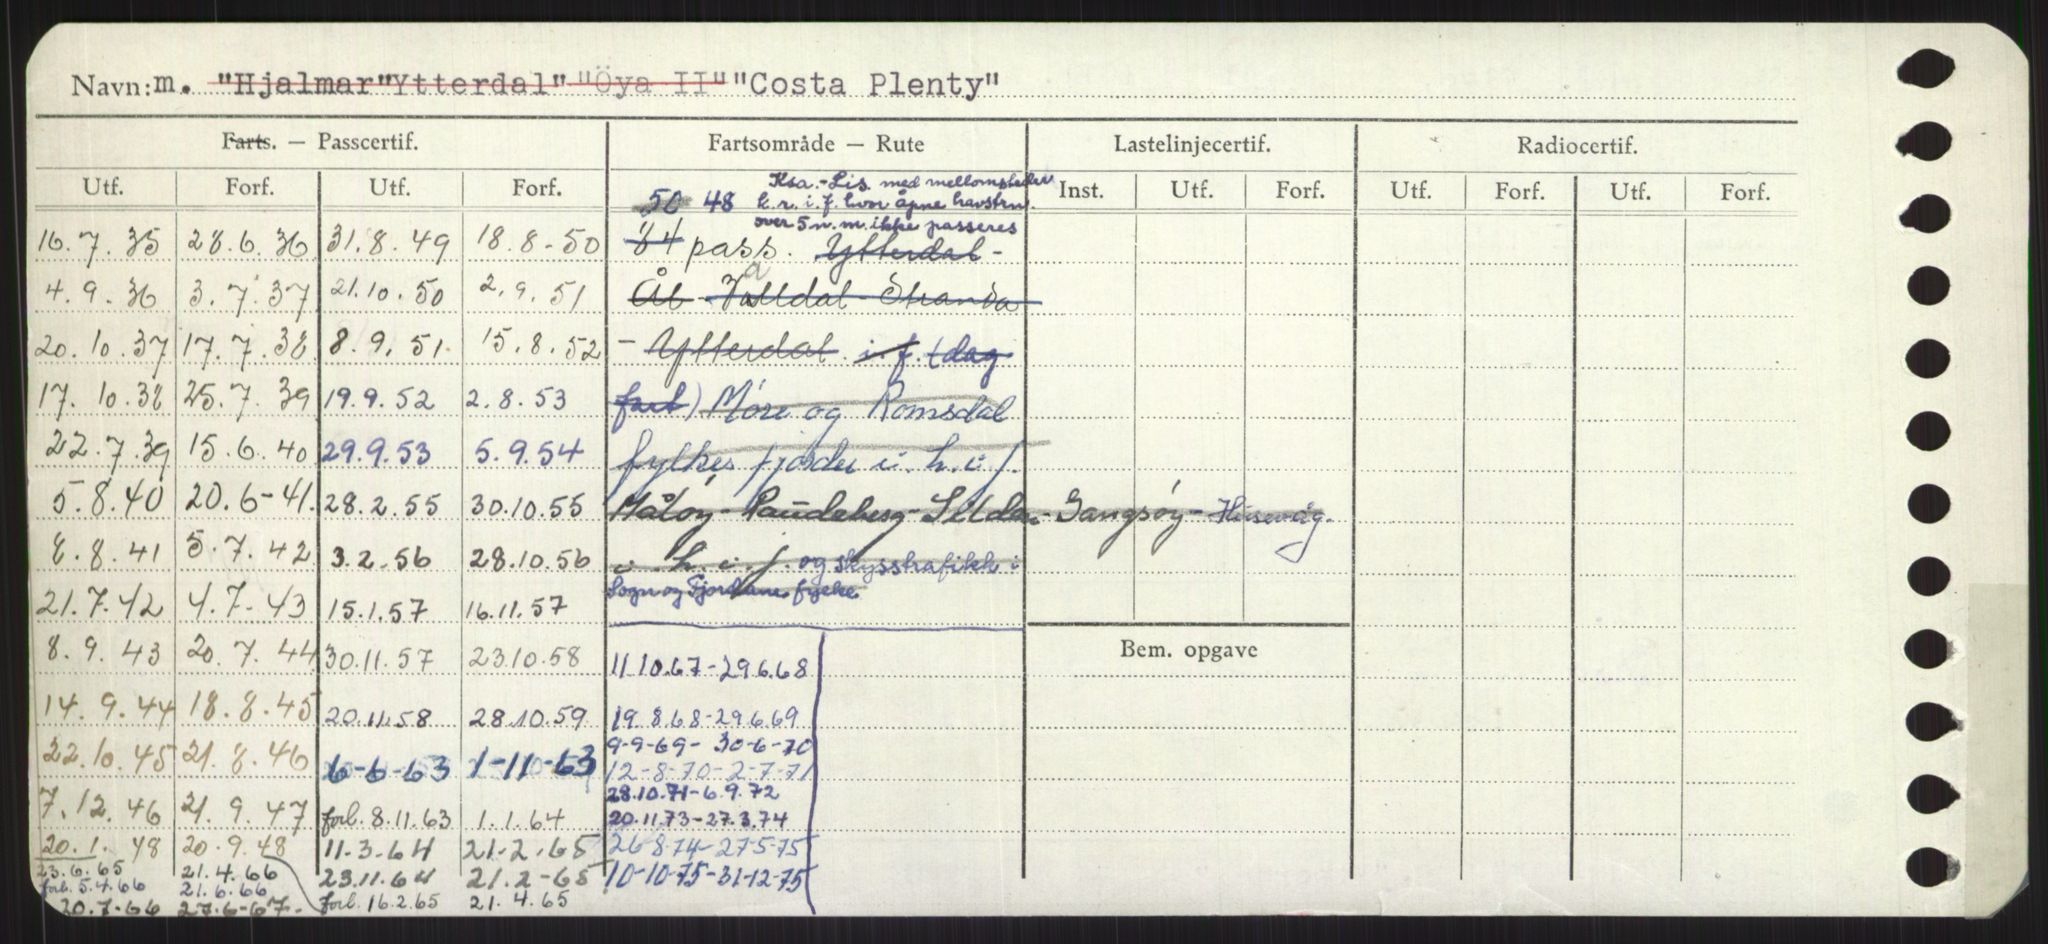 Navn: m. "Hjalmar" "Ytterdal" "Öya II" "Costa Plenty"
Farts. — Passcertif. Fartsområde — Rute Lastelinjecertif. Radiocertif.
Utf. Forf. Utf. Forf. Inst. Utf. Forf. Utf. Forf. Utf. Forf.
Ksa.-Lis. med mellomsteder
50 48 k.r.i.f. hvor åpne havstrn.
over 5 n.m. ikke passeres
16.7.35 28.6.36 31.8.49 18.8-50 84 pass. Ytterdal -
4.9.36 3.7.37 21.10.50 2.9.51 Ål - Valldal - Stranda
20.10.37 17.7.38 8.9.51 15.8.52 - Ytterdal i.f. (dag
17.10.38 25.7.39 19.9.52 2.8.53 fart) Möre og Romsdal
22.7.39 15.6.40 29.9.53 5.9.54 fylkes fjorder i. h. i f.
5.8.40 20.6-41. 28.2.55 30.10.55 Måløy - Raudeberg - Silda - Gangsøy - Husevåg.
8.8.41 5.7.42 3.2.56 28.10.56 i. h. i. f. og skysstrafikk i
21.7.42 4.7-43 15.1.57 16.11.57 Sogn og Fjordane fylke
8.9.43 20.7.44 30.11.57 23.10.58 11.10.67-29.6.68
Bem. opgave
14.9.44 18.8.45 20.11.58 28.10.59 19.8.68-29.6.69
9-9-69- 30-6-70
22.10.45 21.8.46 6-6-63 1-11-63 12-8-70-2-7-71
28.10.71-6.9.72
7.12.46 21.9.47 forl. 8.11.63 1.1.64 20.11.73-27.3.74
20.1.48 20.9.48 11.3.64 21.2.65 26.8.74-27-5-75
23.6.65 21.4.66 23.11.64 21.2-65 10-10-75-31-12-75
forl. 5.4.66 21.6.66
20.7-66 27.6-67- forl. 16.2.65 21.4.65